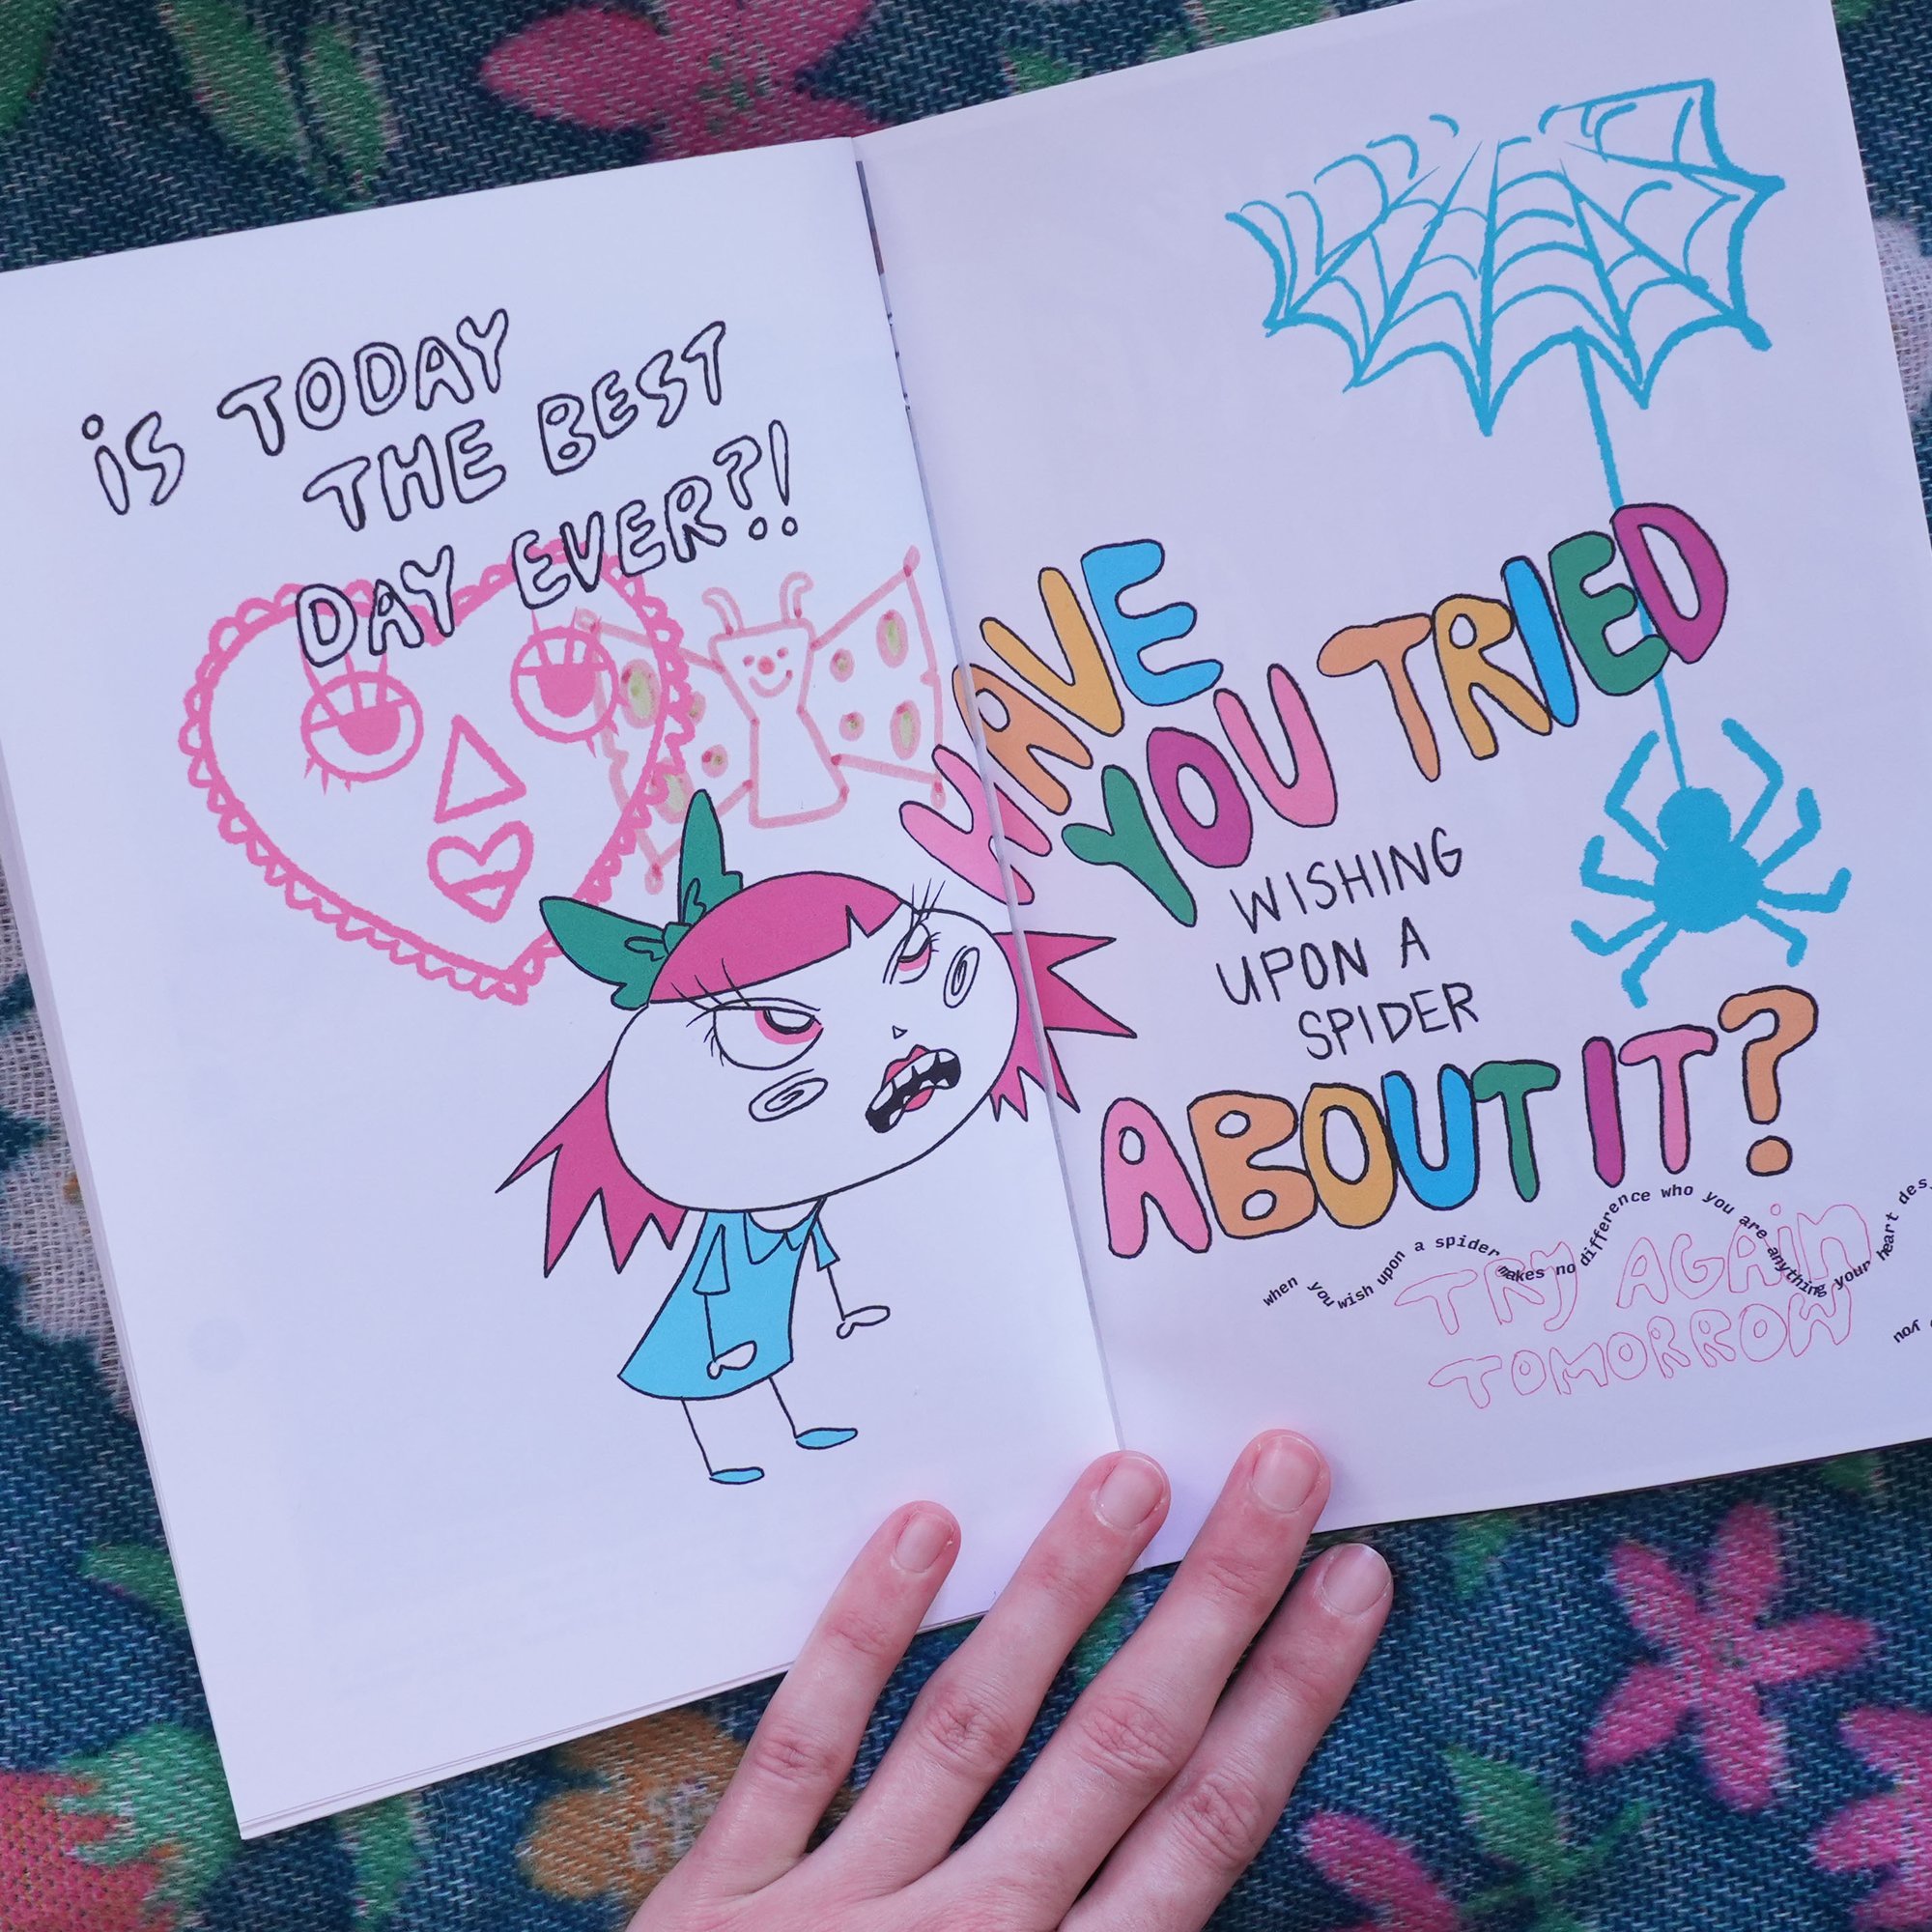 is TODAY
THE BEST
DAY EVER?!
HAVE
YOU TRIED
WISHING
UPON A
SPIDER
ABOUT IT?
when you wish upon a spider makes no difference who you are anything your heart des
you
TRY AGAiN
TOMORROW